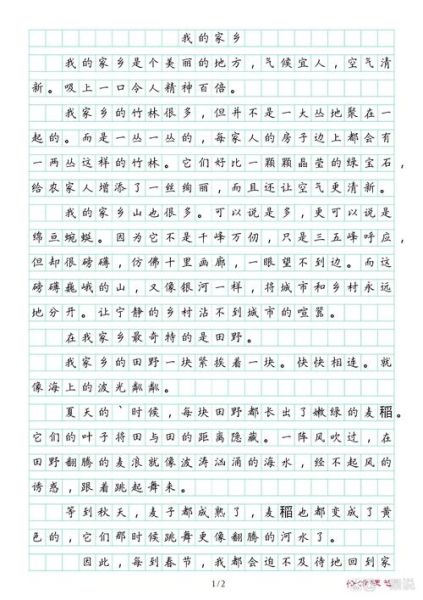 我的家乡
我的家乡是个美丽的地方，气候宜人，空气清
新。吸上一口令人精神百倍。
我家乡的竹林很多，但并不是一大丛地聚在一
起的。而是一丛一丛的，每家人的房子边上都会有
一两丛这样的竹林。它们好比一颗颗晶莹的绿宝石，
给农家人增添了一丝绚丽，而且还让空气更清新。
我的家乡山也很多。可以说是多，更可以说是
绵亘蜿蜒。因为它不是千峰万仞，只是三五峰呼应，
但却很磅礴，仿佛十里画廊，一眼望不到边。而这
磅礴巍峨的山，又像银河一样，将城市和乡村永远
地分开。让宁静的乡村沾不到城市的喧嚣。
在我家乡最奇特的是田野。
我家乡的田野一块紧挨着一块。快快相连。就
像海上的波光粼粼。
夏天的｀时候，每块田野都长出了嫩绿的麦稻。
它们的叶子将田与田的距离隐藏。一阵风吹过，在
田野翻腾的麦浪就像波涛汹涌的海水，经不起风的
诱惑，跟着跳起舞来。
等到秋天，麦子都成熟了，麦稻也都变成了黄
色的，它们那时候跳舞更像翻腾的河水了。
因此，每到春节，我都会迫不及待地回到家
1/2